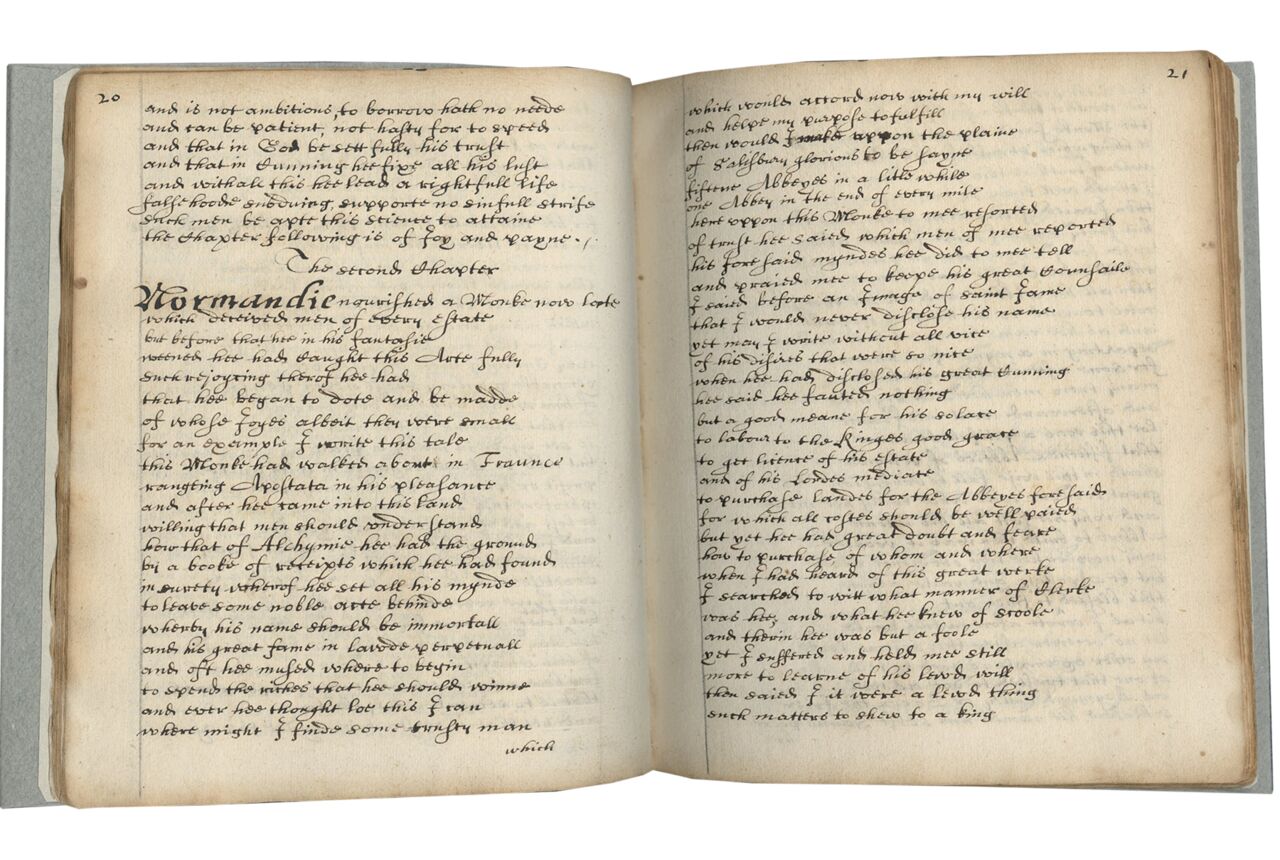 20
and is not ambitious, to borrow hath no neede
and can be patient, not hasty for to speed
and that in God be sett fully his trust
and that in Cunning hee fixe all his lust
and withall this hee lead a rightfull life
falsehoode subduing, supporte no sinfull strife
such men be apte this science to attaine
the Chapter following is of Joy and payne
The second Chapter
Normandie nourished a Monke now late
which deceived men of every estate
but before that hee in his fantasie
weened hee had Caught this Arte fully
such rejoycing therof hee had
that hee began to dote and be madde
of whose Joyes albeit they were small
for an example I write this tale
this Monke had walked about in Fraunce
rangeing Apostata in his pleasance
and after hee came into this land
willing that men should understand
how that of Alchymie hee had the ground
by a booke of receipts which hee had found
in surety wherof hee set all his mynde
to leave some noble acte behinde
wherby his name should be immortall
and his great fame in lawde perpetuall
and oft hee mused where to begin
to spend the riches that hee should winne
and ever hee thought loe this I can
where might I finde some trusty man
which
21
which would accord now with my will
and helpe my purpose to fulfill
then would I make uppon the plaine
of Salisbury glorious to be sayne
fiftene Abbeyes in a litle while
one Abbey in the end of every mile
here uppon this Monke to mee resorted
of trust hee saied which men of mee reported
his foresaid myndes hee did to mee tell
and praied mee to keepe his great Counsaile
I saied before an Image of saint Jame
that I would never disclose his name
yet may I write without all vice
of his disires that were so nice
when hee had disclosed his great Cunning
hee said hee fauted nothing
but a good meane for his solace
to labour to the Kinges good grace
to get licence of his estate
and of his Lordes mediate
to purchase landes for the Abbeyes foresaid
for which all costes should be well paied
but yet hee had great doubt and feare
how to purchase, of whom and where
when I had heard of this great werke
I searched to witt what manner of Clerke
was hee, and what hee knew of scoole
and therin hee was but a foole
yet I suffered and held mee still
more to learne of his lewd will
then saied I it were a lewd thing
such matters to shew to a king